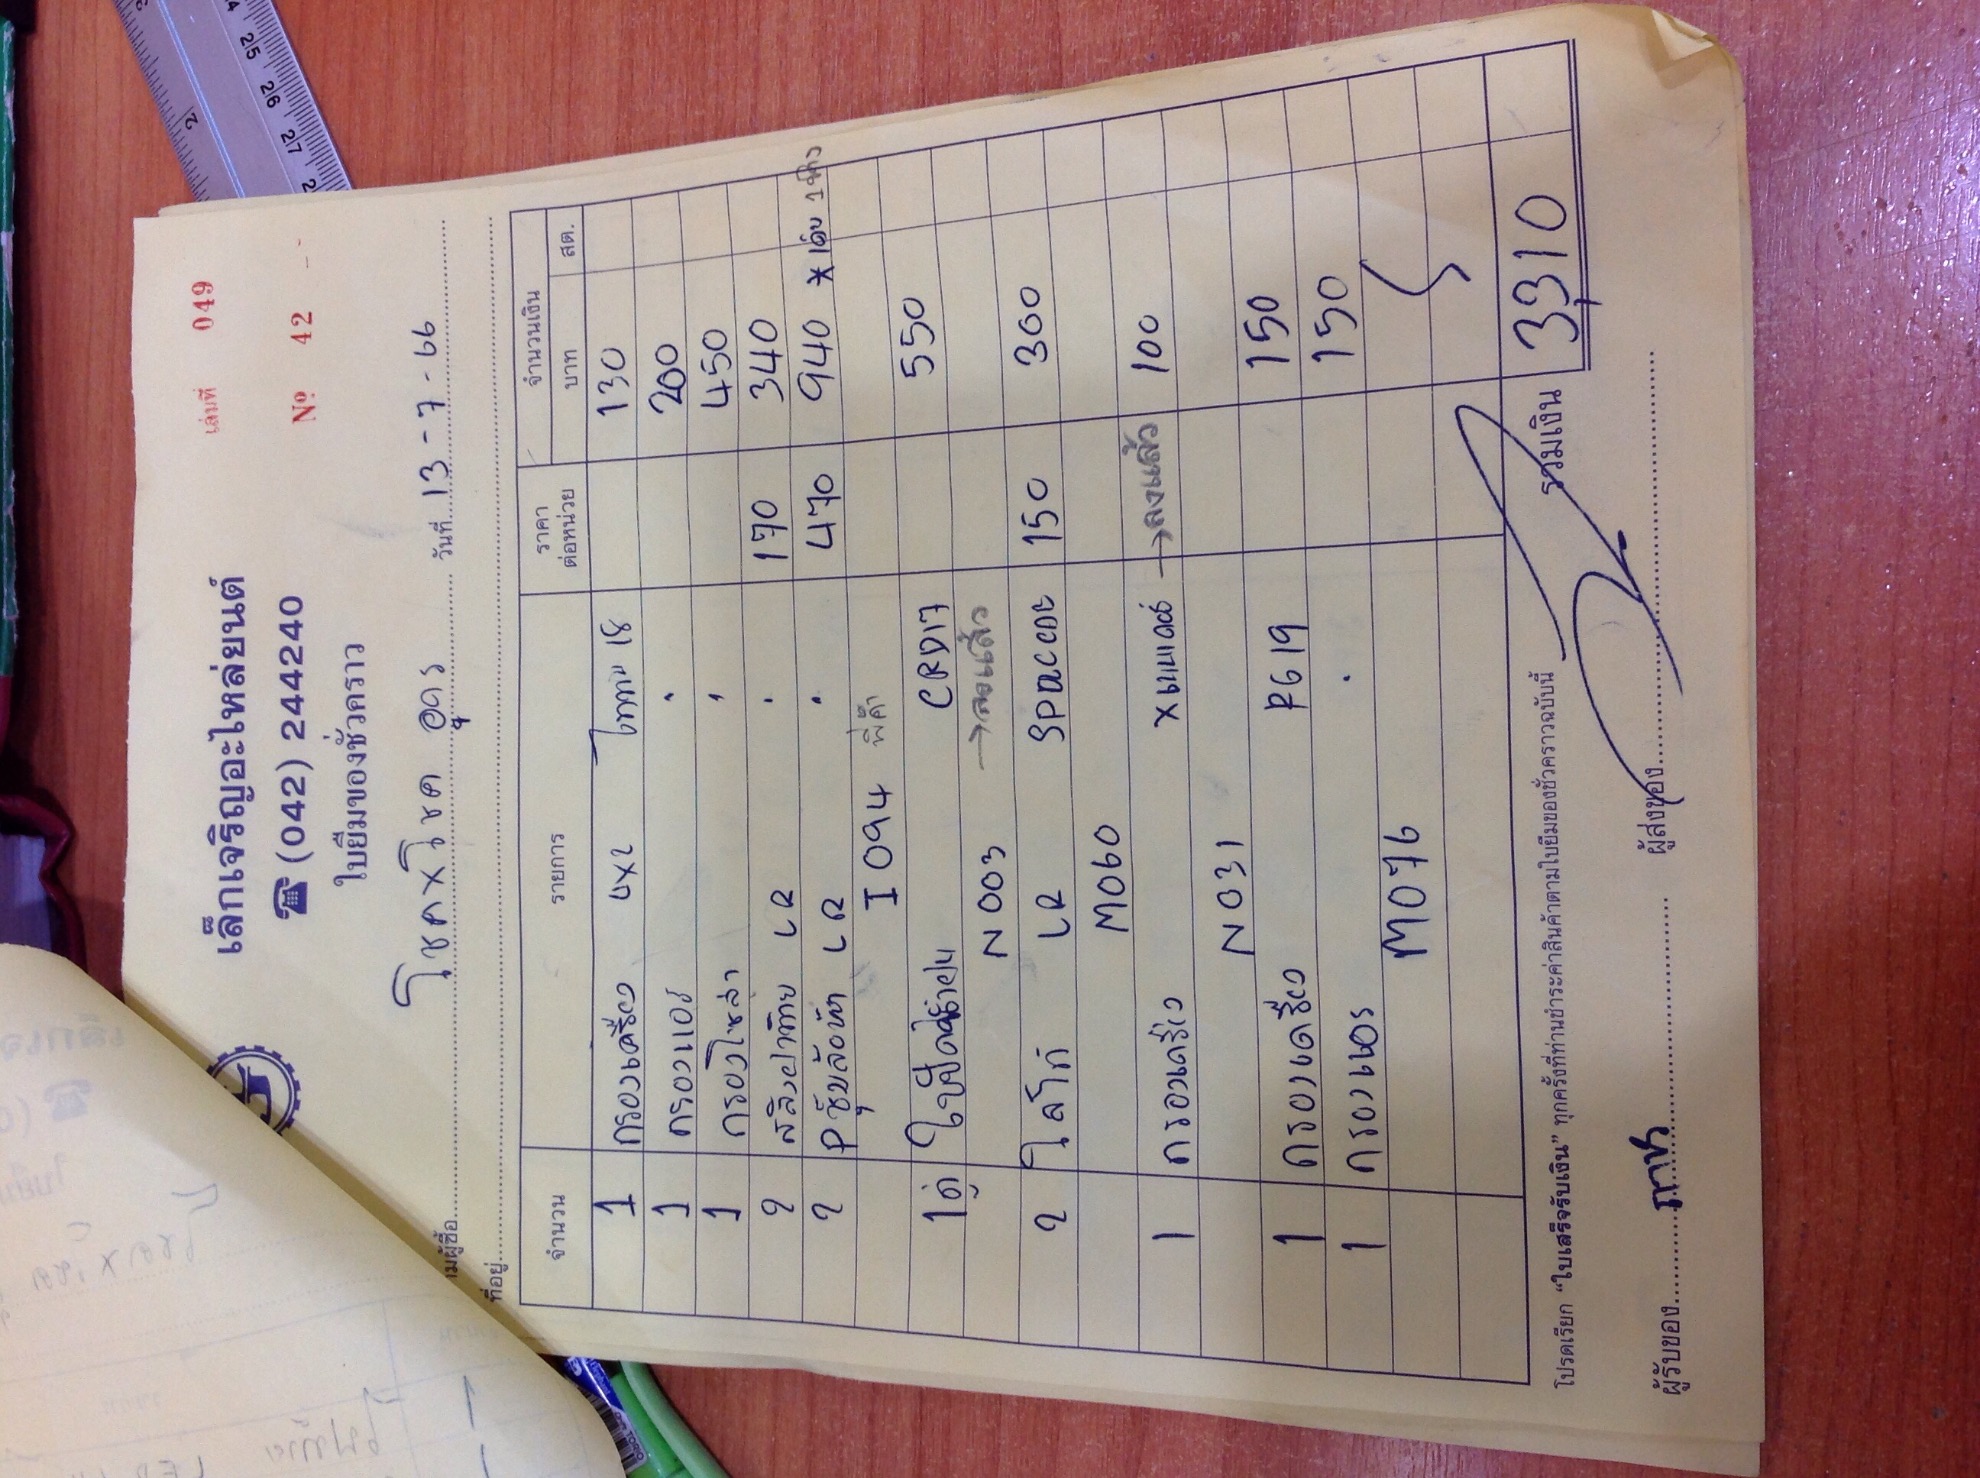 เล่มที่ 049
เล็กเจริญอะไหล่ยนต์
☎ (042) 244240
№ 42
ใบยืมของชั่วคราว
โชคxโชค อุดร
วันที่ 13-7-66
นามผู้ซื้อ
ที่อยู่
จำนวน รายการ ราคาต่อหน่วย จำนวนเงิน
บาท สต.
1 กรองเครื่อง 130
1 กรองแอร์ 200
1 กรองโซล่า 450
2 LR 170 340
2 LR 470 940
I 094 พี่คำ
1 คู่ CRD17 550
N 003 → ลงแล้ว
2 LR 150 300
M060
1 กรองเครื่อง → ลงแล้ว 100
N031
1 กรองเครื่อง R619 150
1 กรองแอร์ 150
M076
รวมเงิน 3,310
โปรดเรียก "ใบเสร็จรับเงิน" ทุกครั้งที่ท่านชำระค่าสินค้าตามใบยืมของชั่วคราวฉบับนี้
ผู้รับของ ผู้ส่งของ
24 25 26 27